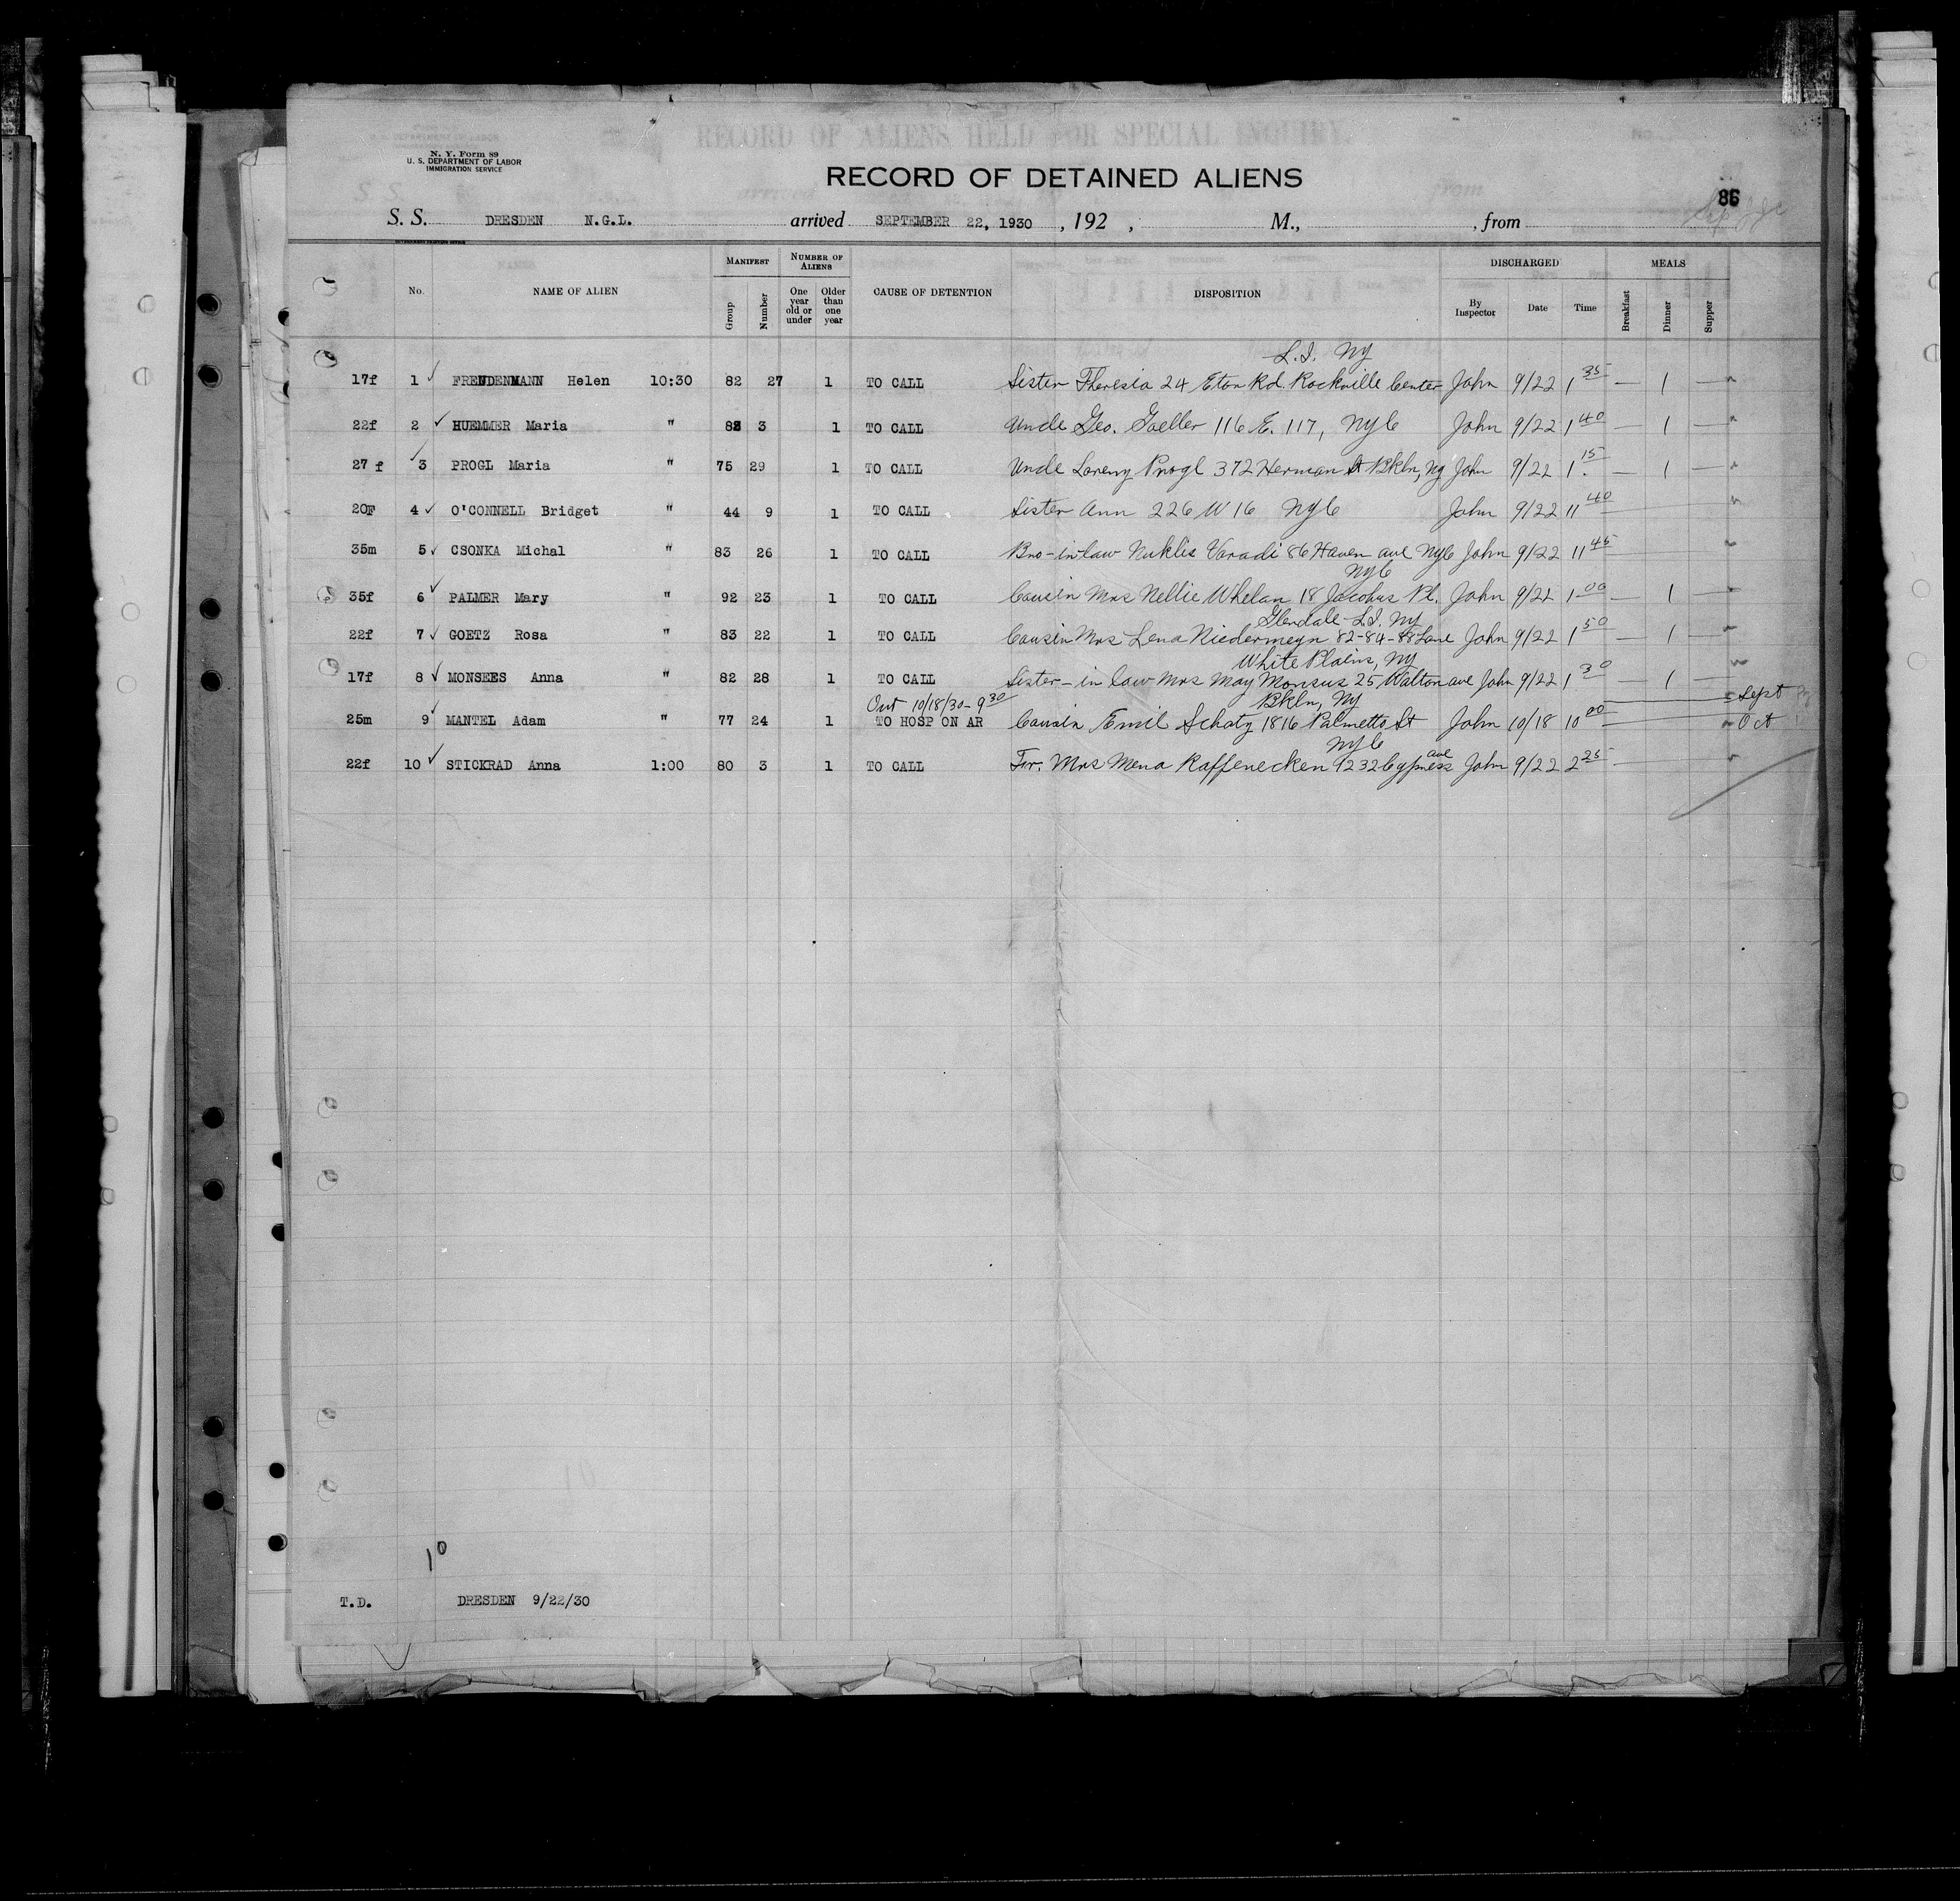 RECORD OF ALIENS HELD FOR SPECIAL INQUIRY.
N. Y. Form 89
U. S. DEPARTMENT OF LABOR
IMMIGRATION SERVICE
RECORD OF DETAINED ALIENS
86
S. S. DRESDEN N.G.L. arrived SEPTEMBER 22, 1930 , 192 , M., , from
No. NAME OF ALIEN MANIFEST Group Number NUMBER OF ALIENS One year old or under Older than one year CAUSE OF DETENTION DISPOSITION DISCHARGED By Inspector Date Time MEALS Breakfast Dinner Supper
L.I. NY
17f 1 FRENDENMANN Helen 10:30 82 27 1 TO CALL Sister Theresia 24 Eton Rd. Rockville Center John 9/22 1 35 — 1 —
22f 2 HUEMMER Maria " 82 3 1 TO CALL Uncle Geo. Goeller 116 E. 117, NYC John 9/22 1 40 — 1 —
27 f 3 PROGL Maria " 75 29 1 TO CALL Uncle Lorenz Progl 372 Herman St Bkln, NY John 9/22 1 15 — 1 —
20F 4 O'CONNELL Bridget " 44 9 1 TO CALL Sister Ann 226 W 16 NYC John 9/22 11 40
35m 5 CSONKA Michal " 83 26 1 TO CALL Bro-in-law Varadi 86 Haven ave NYC John 9/22 11 45
NYC
35f 6 PALMER Mary " 92 23 1 TO CALL Cousin Mrs Nellie Whelan 18 Jacobus Pl. John 9/22 1 00 — 1 —
Glendale - L.I. NY
22f 7 GOETZ Rosa " 83 22 1 TO CALL Cousin Mrs Lena Niedermeyn 82-84-88 Lane John 9/22 1 50 — 1 —
White Plains, NY
17f 8 MONSEES Anna " 82 28 1 TO CALL Sister-in law Mrs May Monsus 25 Walton ave John 9/22 1 30 — 1 —
Out 10/18/30 - 9 30 Bkln, NY Sept
25m 9 MANTEL Adam " 77 24 1 TO HOSP ON AR Cousin Emil Schatz 1816 Palmetto St John 10/18 10 00 Oct
NYC
22f 10 STICKRAD Anna 1:00 80 3 1 TO CALL Fr. Mrs Mena Raffenecken 9232 Cypress ave John 9/22 2 25
10
T.D. DRESDEN 9/22/30